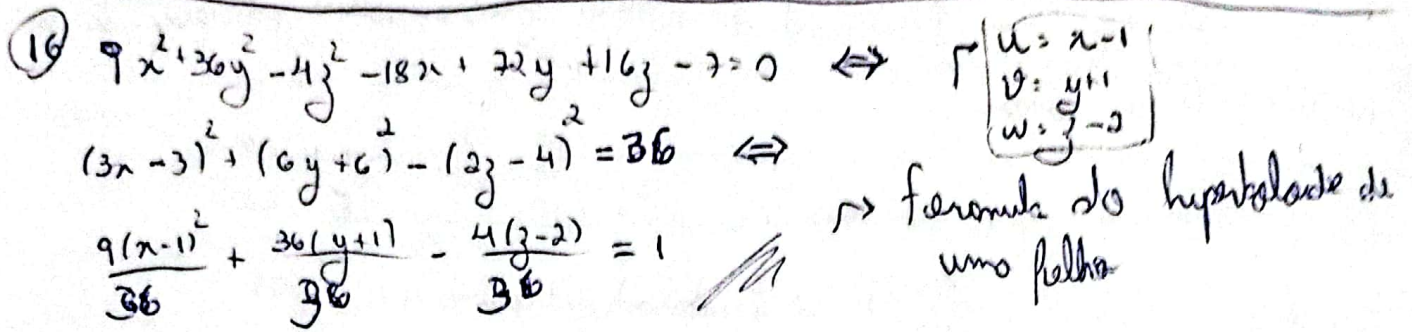 16 9x²+36y²-4z²-18x+72y+16z-7=0 ⇔
(3x-3)²+(6y+6)²-(2z-4)²=36 ⇔
9(x-1)²/36 + 36(y+1)/36 - 4(z-2)/36 = 1
u=x-1
v=y+1
w=z-2
→ formula do hiperboloide de
uma folha